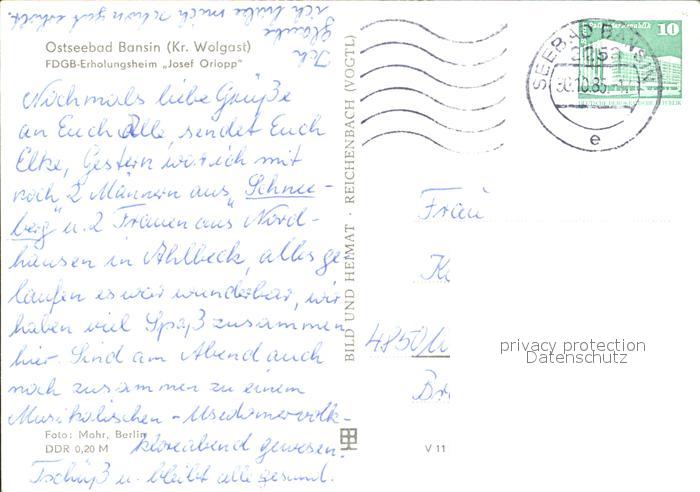 Ostseebad Bansin (Kr. Wolgast)
FDGB-Erholungsheim „Josef Orlopp"
Nochmals liebe Grüße
an Euch Alle, sendet Euch
Elke, Gestern war ich mit
noch 2 Männern aus „Schnee-
berg" u. 2 Frauen aus Nord-
hausen in Ahlbeck, alles ge
laufen es war wunderbar, wir
haben viel Spaß zusammen
hier. Sind am Abend auch
noch zusammen zu einem
Musikalischen - Usedomervolk-
kloreabend gewesen.
Tschüß u. bleibt alle gesund.
Ich
glaube
ich habe mich schon gut erholt.
Foto: Mahr, Berlin
DDR 0,20 M
BILD UND HEIMAT · REICHENBACH (VOGTL)
V 11
SEEBAD BANSIN
3255
30.10.85
e
10
DEUTSCHE DEMOKRATISCHE REPUBLIK
Frau
4850
privacy protection
Datenschutz